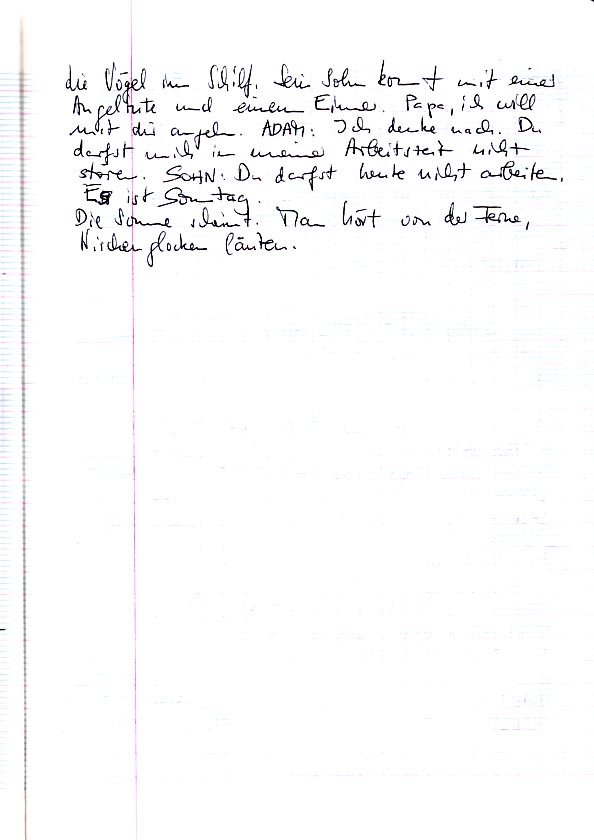 die Vögel im Schilf. Sein Sohn kommt mit einer
Angelrute und einen Eimer. Papa, ich will
mit dir angeln. ADAM: Ich denke nach. Du
darfst mich in meiner Arbeitszeit nicht
stören. SOHN: Du darfst heute nicht arbeiten.
Es ist Sonntag.
Die Sonne scheint. Man hört von der Ferne,
Kirchenglocken läuten.